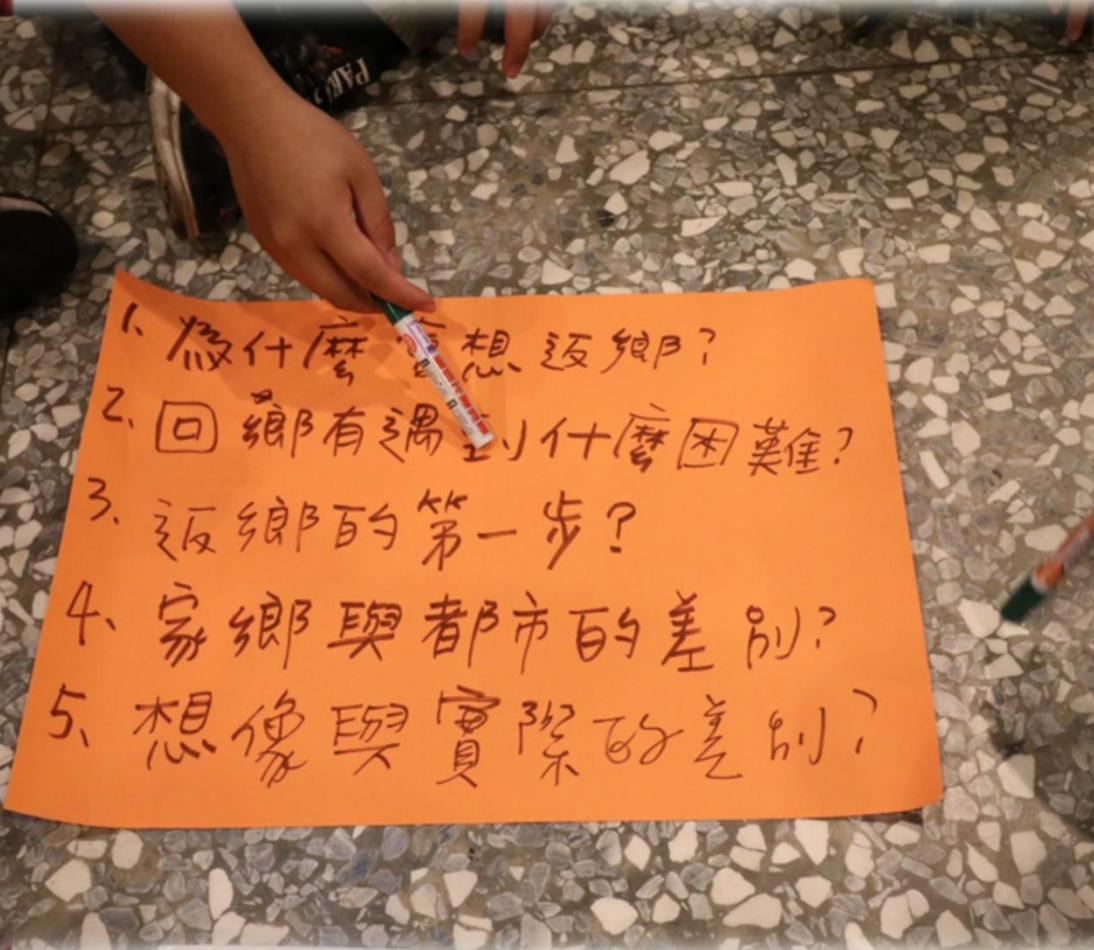 1. 為什麼會想返鄉?
2. 回鄉有遇到什麼困難?
3、返鄉的第一步?
4、家鄉與都市的差別?
5、想像與實際的差別?